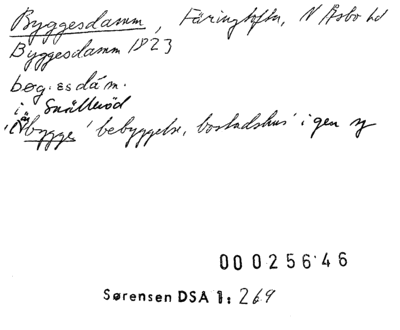 Byggesdamm, Färingtofta, N Åsbo hd
Byggesdamm 1823
bøg.esdám.
i Snälleröd
bygge 'bebyggelse, bostadshus' i gen sg
00025646
Sørensen DSA 1: 269